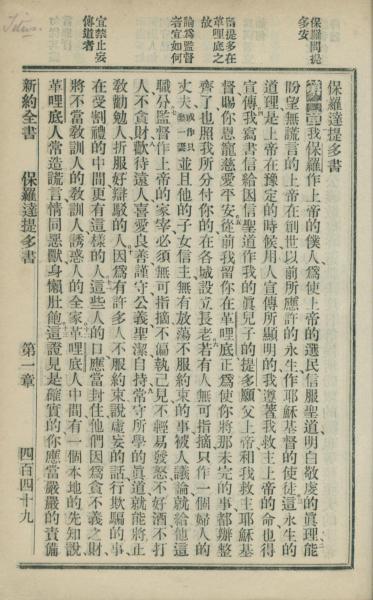 保羅達提多書
第一章 我保羅作上帝的僕人、為使上帝的選民信服聖道明白敬虔的眞理、能
盼望無謊言的上帝、在創世以前所應許的永生、作耶穌基督的使徒、這永生的
道理、是上帝在豫定的時候、用人宣傳所顯明的、我遵著我救主上帝的命、也得
宣傳、我寫書信給因信聖道作我的眞兒子的提多、願父上帝和我救主耶穌基
督、賜你恩寵慈愛平安、從前我留你在革哩底、正為使你將那未完的事、都辦整
齊了、也照我所分付你的、在各城設立長老、若有人無可指摘、只作一個婦人的
丈夫、並且他的子女信主、無有放蕩不服約束的事被人議論、就給他這
職分、監督作上帝的家宰、必須無可指摘、不偏執己見、不輕易發怒、不好酒、不打
人、不貪財、歡待遠人、喜愛良善、謹守公義、聖潔自持、常守所學的眞道、就能將正
敎勸勉人、折服好辯駁的人、因為有許多人不服約束、說虛妄的話、行欺騙的事、
在受割禮的中間、更有這樣的人、這些人的口、應當封住、他們因為貪不義之財、
將不當敎訓人的敎訓人、誘惑人的全家、革哩底人中間、有一個本地的先知說、
革哩底人常造謊言、情同惡獸、身懶肚飽、這證見是確實的、你應當嚴嚴的責備
保羅問提多安
留提多在革哩底之故
論為監督者宜如何
宜禁止妄傳道者
新約全書
保羅達提多書
第一章
四百四十九
Titus.